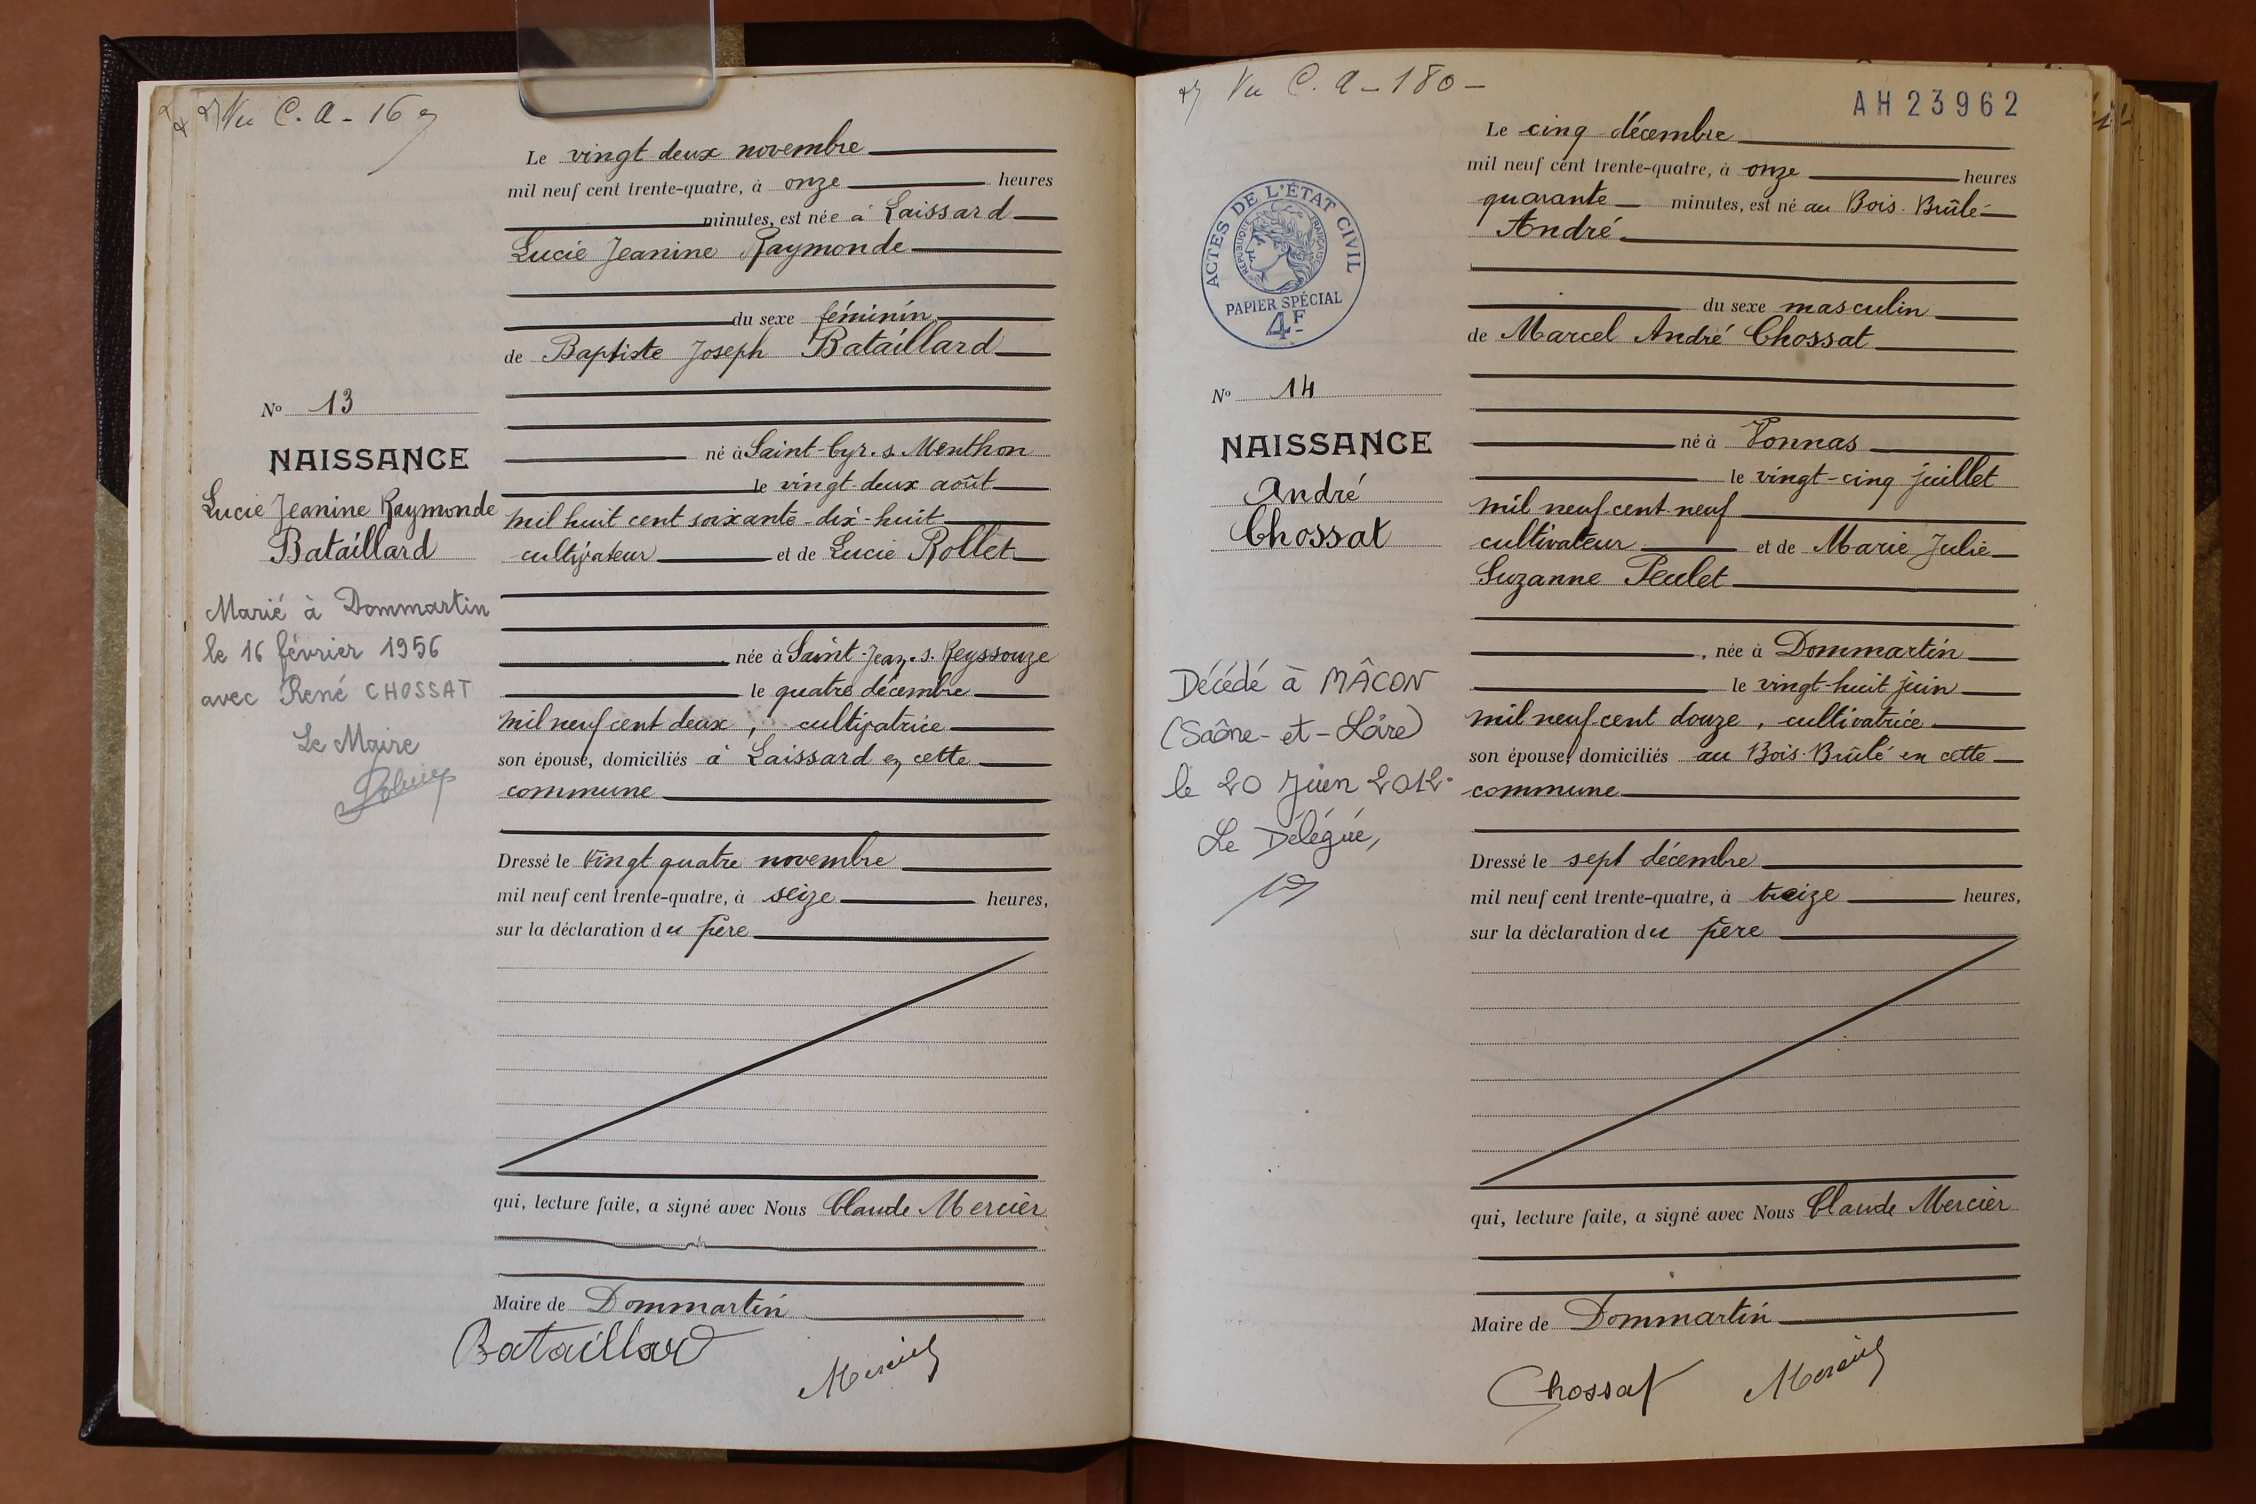 Vu C. A - 169
Le vingt deux novembre
mil neuf cent trente-quatre, à onze heures
minutes, est née à Laissard
Lucie Jeanine Raymonde
du sexe féminin
de Baptiste Joseph Bataillard
né à Saint-Cyr. s. Menthon
le vingt-deux août
mil huit cent soixante-dix-huit
cultivateur et de Lucie Rollet
née à Saint-Jean. s. Reyssouze
le quatre décembre
mil neuf cent deux, cultivatrice
son épouse, domiciliés à Laissard en cette
commune
Dressé le vingt quatre novembre
mil neuf cent trente-quatre, à seize heures,
sur la déclaration du père
qui, lecture faite, a signé avec Nous Claude Mercier
Maire de Dommartin
Bataillard
Mercier
No 13
NAISSANCE
Lucie Jeanine Raymonde
Bataillard
Marié à Dommartin
le 16 février 1956
avec René CHOSSAT
Le Maire
Vu C. A - 180 -
AH23962
Le cinq décembre
mil neuf cent trente-quatre, à onze heures
quarante minutes, est né au Bois-Brûlé
André
du sexe masculin
de Marcel André Chossat
né à Vonnas
le vingt-cinq juillet
mil neuf cent neuf
cultivateur et de Marie Julie
Suzanne Peulet
, née à Dommartin
le vingt-huit juin
mil neuf cent douze, cultivatrice
son épouse, domiciliés au Bois-Brûlé en cette
commune
Dressé le sept décembre
mil neuf cent trente-quatre, à treize heures,
sur la déclaration du père
qui, lecture faite, a signé avec Nous Claude Mercier
Maire de Dommartin
Chossat
Mercier
ACTES DE L'ÉTAT CIVIL
RÉPUBLIQUE FRANÇAISE
PAPIER SPÉCIAL
4F
No 14
NAISSANCE
André
Chossat
Décédé à MÂCON
(Saône-et-Loire)
le 20 Juin 2012.
Le Délégué,